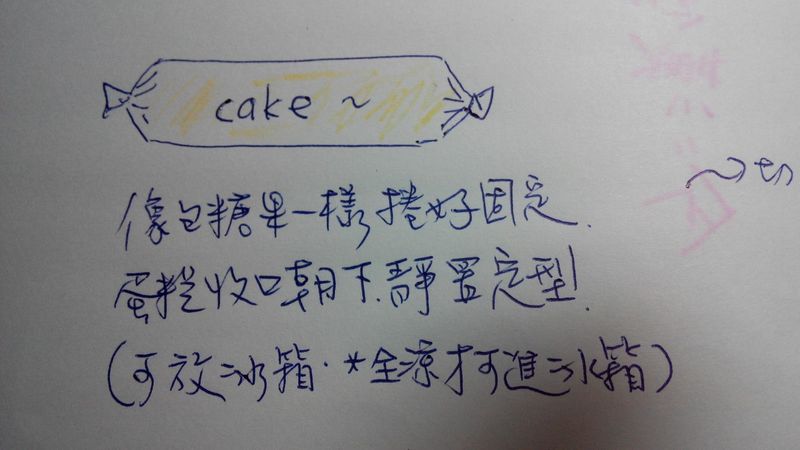 cake ~
像包糖果一樣捲好固定.
蛋糕收口朝下.靜置定型.
(可放冰箱.*全涼才可進冰箱)
切